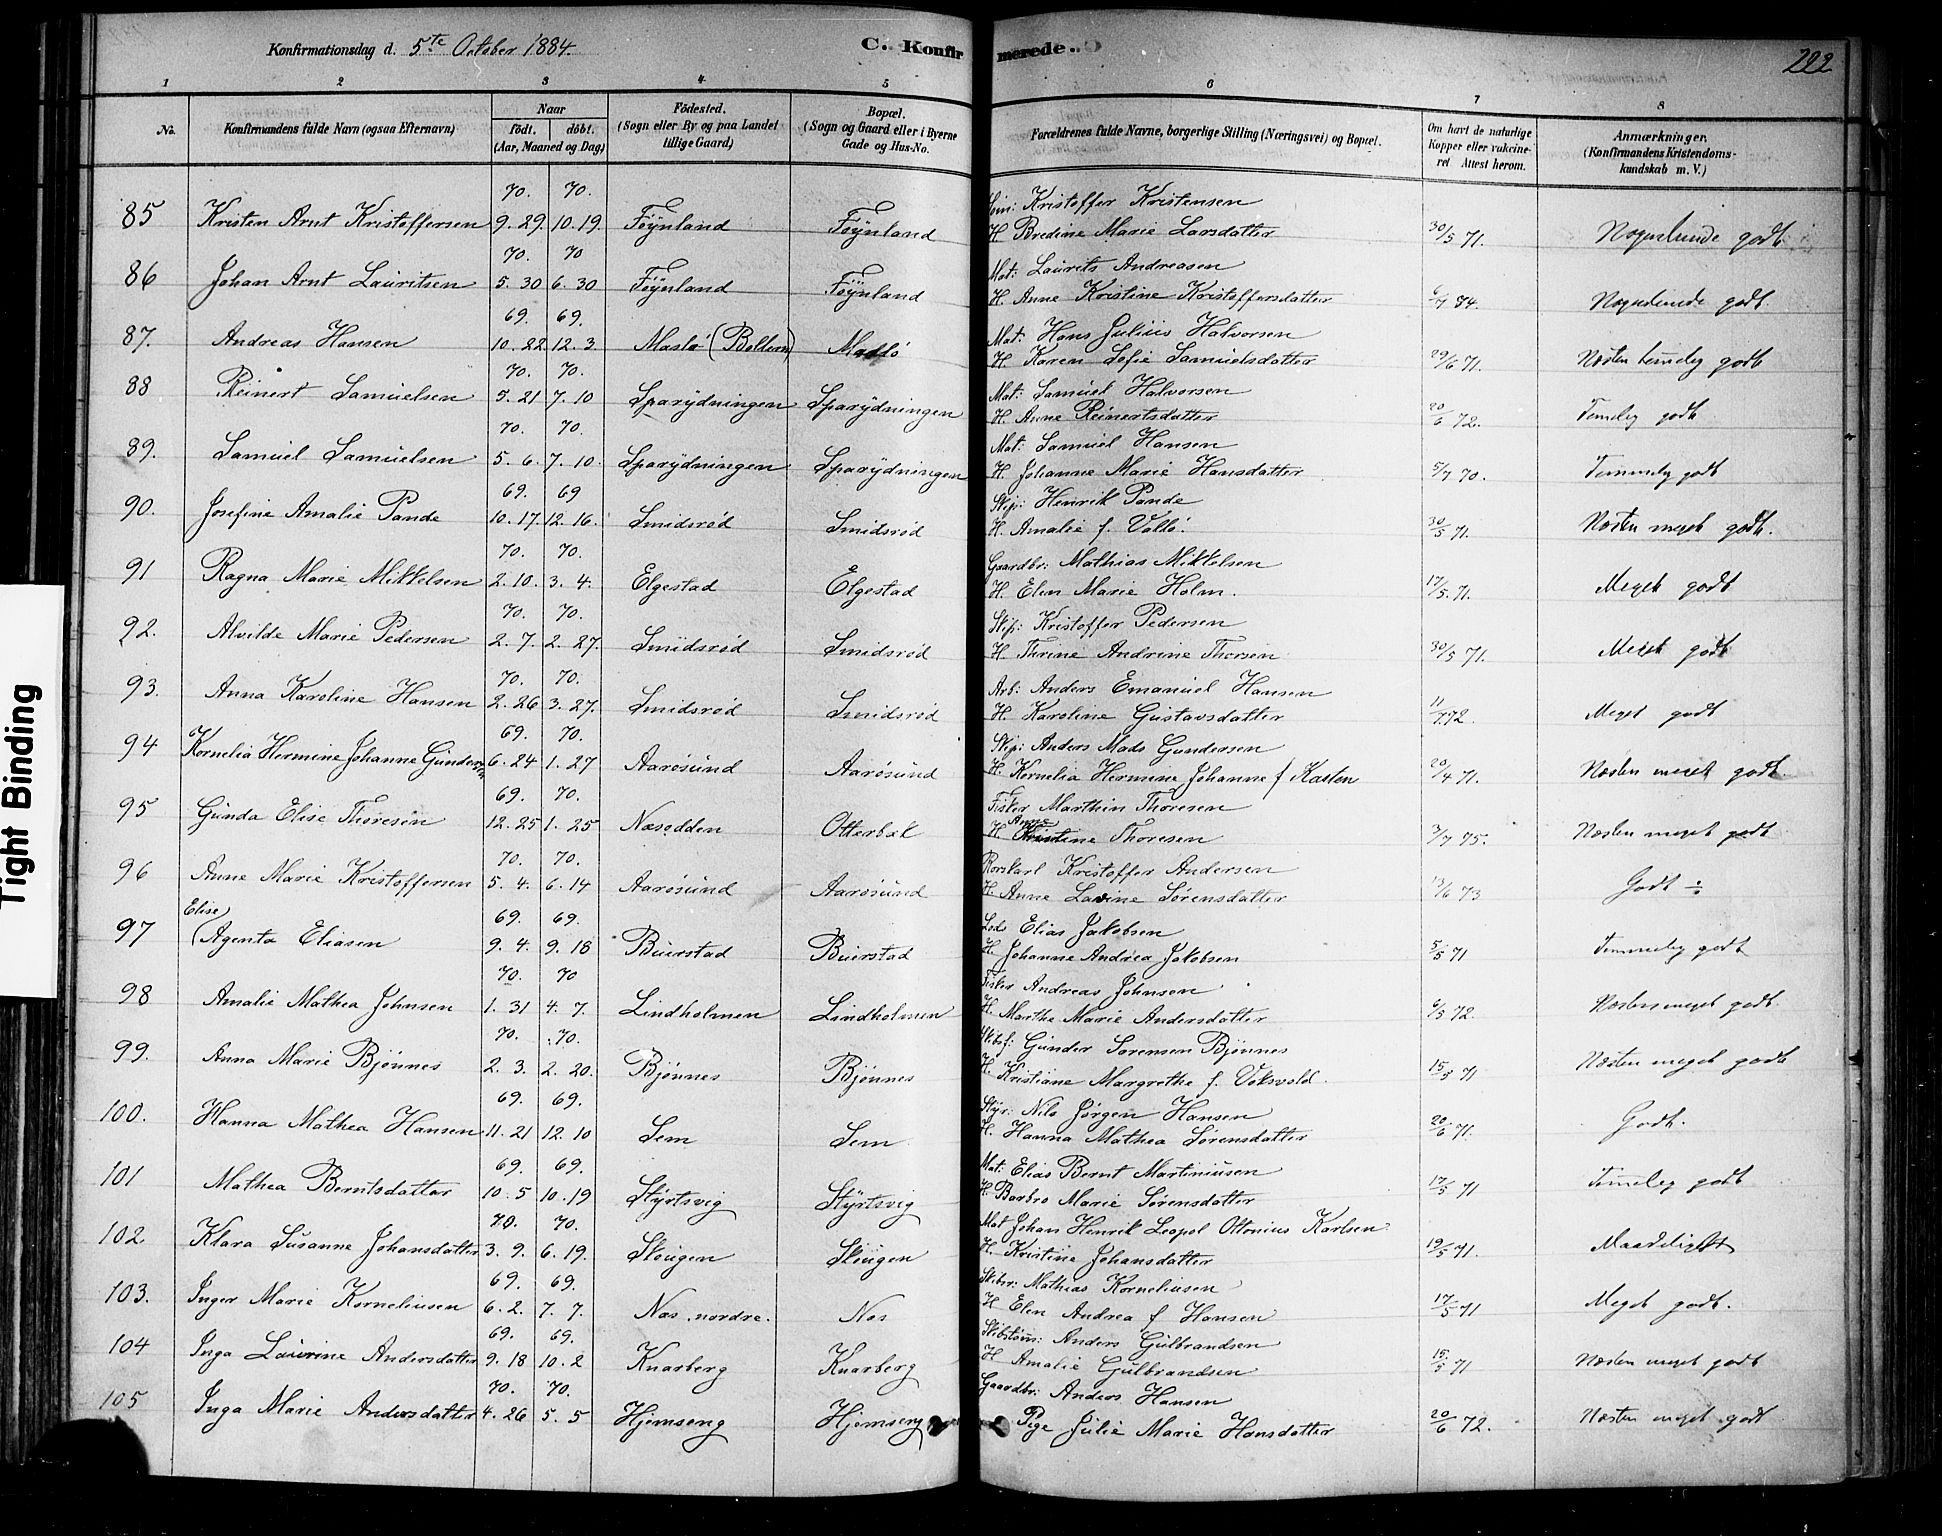 Konfirmationsdag d. 5te October 1884.
C. Konfirmerede.
222
1 2 3 4 5 6 7 8
No.
Konfirmandens fulde Navn (ogsaa Efternavn)
Naar
født. døbt.
(Aar, Maaned og Dag)
Fødested.
(Sogn eller By og paa Landet
tillige Gaard)
Bopæl.
(Sogn og Gaard eller i Byerne
Gade og Hus-No.
Forældrenes fulde Navne, borgerlige Stilling (Næringsvei) og Bopæl.
Om havt de naturlige
Kopper eller vakcine-
ret. Attest herom.
Anmærkninger.
(Konfirmandens Kristendoms-
kundskab m. V.)
70. 70. Kristoffer Kristensen
85 Kristen Arnt Kristoffersen 9. 29. 10. 19. Föynland Föynland H. Bredine Marie Larsdatter 30/5 71. godt
70. 70 Mat: Laurits Andreasen
86 Johan Arnt Lauritsen 5. 30 6. 30 Föynland Föynland H. Anne Kristine Kristoffersdatter 6/7 84. godt.
69. 69. Mat: Hans Julius Halvorsen
87. Andreas Hansen 10. 22 12. 3 Maslö (Bolleren) Maslö H. Karen Sofie Samuelsdatter 29/6 71. Næsten temmelig godt
70. 70. Mat: Samuel Halvorsen
88 Reinert Samuelsen 5. 21 7. 10 Sparydningen Sparydningen H. Anne Reinertsdatter 20/6 72. Temmelig godt
70. 70. Mat: Samuel Hansen
89. Samuel Samuelsen 5. 6. 7. 10. Sparydningen Sparydningen H. Johanne Marie Hansdatter 5/7 70. Temmelig godt
69. 69 Skip: Henrik Pande
90. Josefine Amalie Pande 10. 17. 12. 16. Smidsrød Smidsrød H. Amalie f. Vallö. 30/5 71. Næsten meget godt.
70. 70. Gaardbr: Mathias Mikkelsen
91 Ragna Marie Mikkelsen 2. 10. 3. 4. Elgestad Elgestad H. Elen Marie Holm. 17/5. 71. Meget godt
70. 70. Skip: Kristoffer Pedersen
92. Alvilde Marie Pedersen 2. 7. 2. 27. Smidsrød Smidsrød H. Thrine Andrine Thorsen 30/5 71. Meget godt
70. 70. Arb: Anders Emanuel Hansen
93. Anna Karoline Hansen 2. 26 3. 27. Smidsrød Smidsrød H. Karoline Gustavsdatter 11/7 72. Meget godt
69. 70. Skip: Anders Mads Gundersen
94 Kornelia Hermine Johanne Gundersen 6. 24 1. 27 Aarøsund Aarøsund H. Kornelia Hermine Johanne f Kasten 20/4 71. Næsten meget godt.
69. 70. Fisker Marthin Thoresen
95 Gunda Elise Thoresen 12. 25 1. 25 Næsodden Otterbæk H. Anne Thoresen 3/7 75. Næsten meget godt
70. 70. Rorskarl Kristoffer Andersen
96 Anne Marie Kristoffersen 5. 4. 6. 14 Aarøsund Aarøsund H. Anne Lavine Sørensdatter 13/6 73 Godt ÷
69. 69. Lods Elias Jakobsen
97 Elise Agenta Eliasen 9. 4. 9. 18 Buerstad Buerstad H. Johanne Andrea Jakobsen 5/5 71 Temmelig godt
70. 70 Fisker Andreas Johnsen
98 Amalie Mathea Johnsen 1. 31 4. 7. Lindholmen Lindholmen H. Marthe Marie Andersdatter 6/5 72. Næsten meget godt.
70. 70. Gunder Sørensen Bjönnes
99. Anna Marie Bjönnes 2. 3. 2. 20. Bjönnes Bjönnes H. Kristiane Margrethe f. Voksvold. 15/5 71 Næsten meget godt
69. 69. Styr: Nils Jørgen Hansen
100. Hanna Mathea Hansen 11. 21 12. 10 Sem Sem H. Hanna Mathea Sørensdatter 20/6 71. Godt.
69. 69. Mat: Elias Bernt Martiniusen
101 Mathea Berntsdatter 10. 5 10. 19 Styrtsvig Styrtsvig H. Barbro Marie Sørensdatter 17/5 71 Temmelig godt
70. 70. Mat Johan Henrik Leopol Ottonius Karlsen
102 Klara Susanne Johansdatter 3. 9. 6. 19. Skougen Skougen H. Kristine Johansdatter 19/5 71. Maadeligt
69. 69. Mathias Korneliusen
103. Inger Marie Korneliusen 6. 2. 7. 7. Nes nordre. Nes H Elen Andrea f Hansen 17/5 71 Meget godt.
69. 69. Skibstöm: Anders Gulbrandsen
104 Inga Laurine Andersdatter 9. 18 10. 2 Knarberg Knarberg H Amalie Gulbrandsen 15./5 71 Næsten meget godt
70. 70. Gaardbr: Anders Hansen
105 Inga Marie Andersdatter 4. 26 5. 5 Hjemseng Hjemseng Pige Julie Marie Hansdatter 20/6 72. Næsten meget godt
Tight Binding